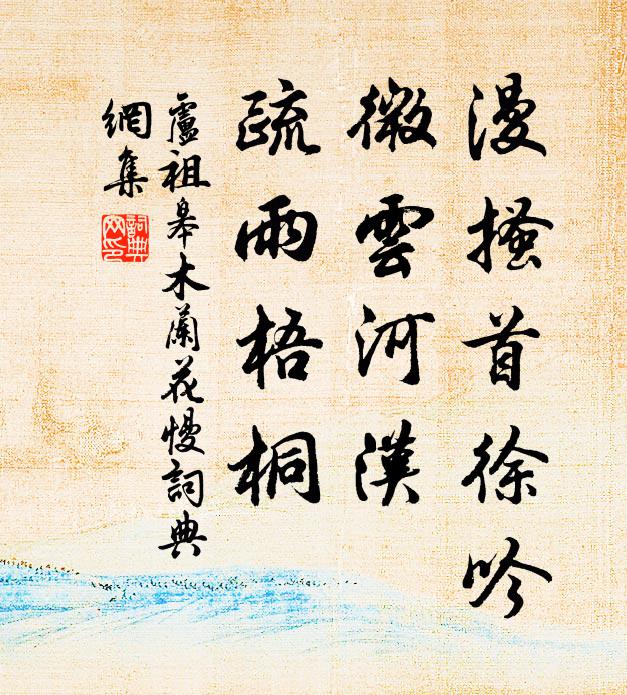 漫搔首徐吟
微雲河漢
疏雨梧桐
盧祖皋木蘭花慢詞典
網集
詞典
网印